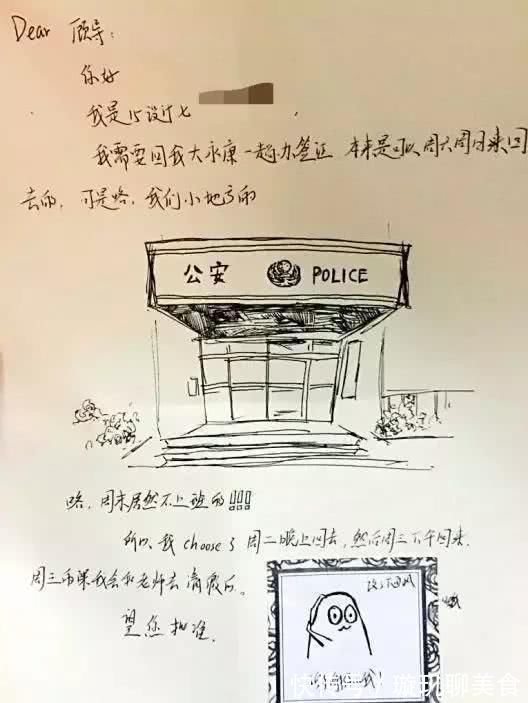 Dear 顾导：
你好
我是15设计七
我需要回我大永康一趟办签证 本来是可以周六周日来回
去的，可是咯，我们小地方的
公安 POLICE
咯，周末居然不上班的!!!
所以 我 choose 了 周二晚上回去，然后周三下午回来.
周三的课我会和老师去请假的。
望您批准.
快传号 / 璇玑聊美食